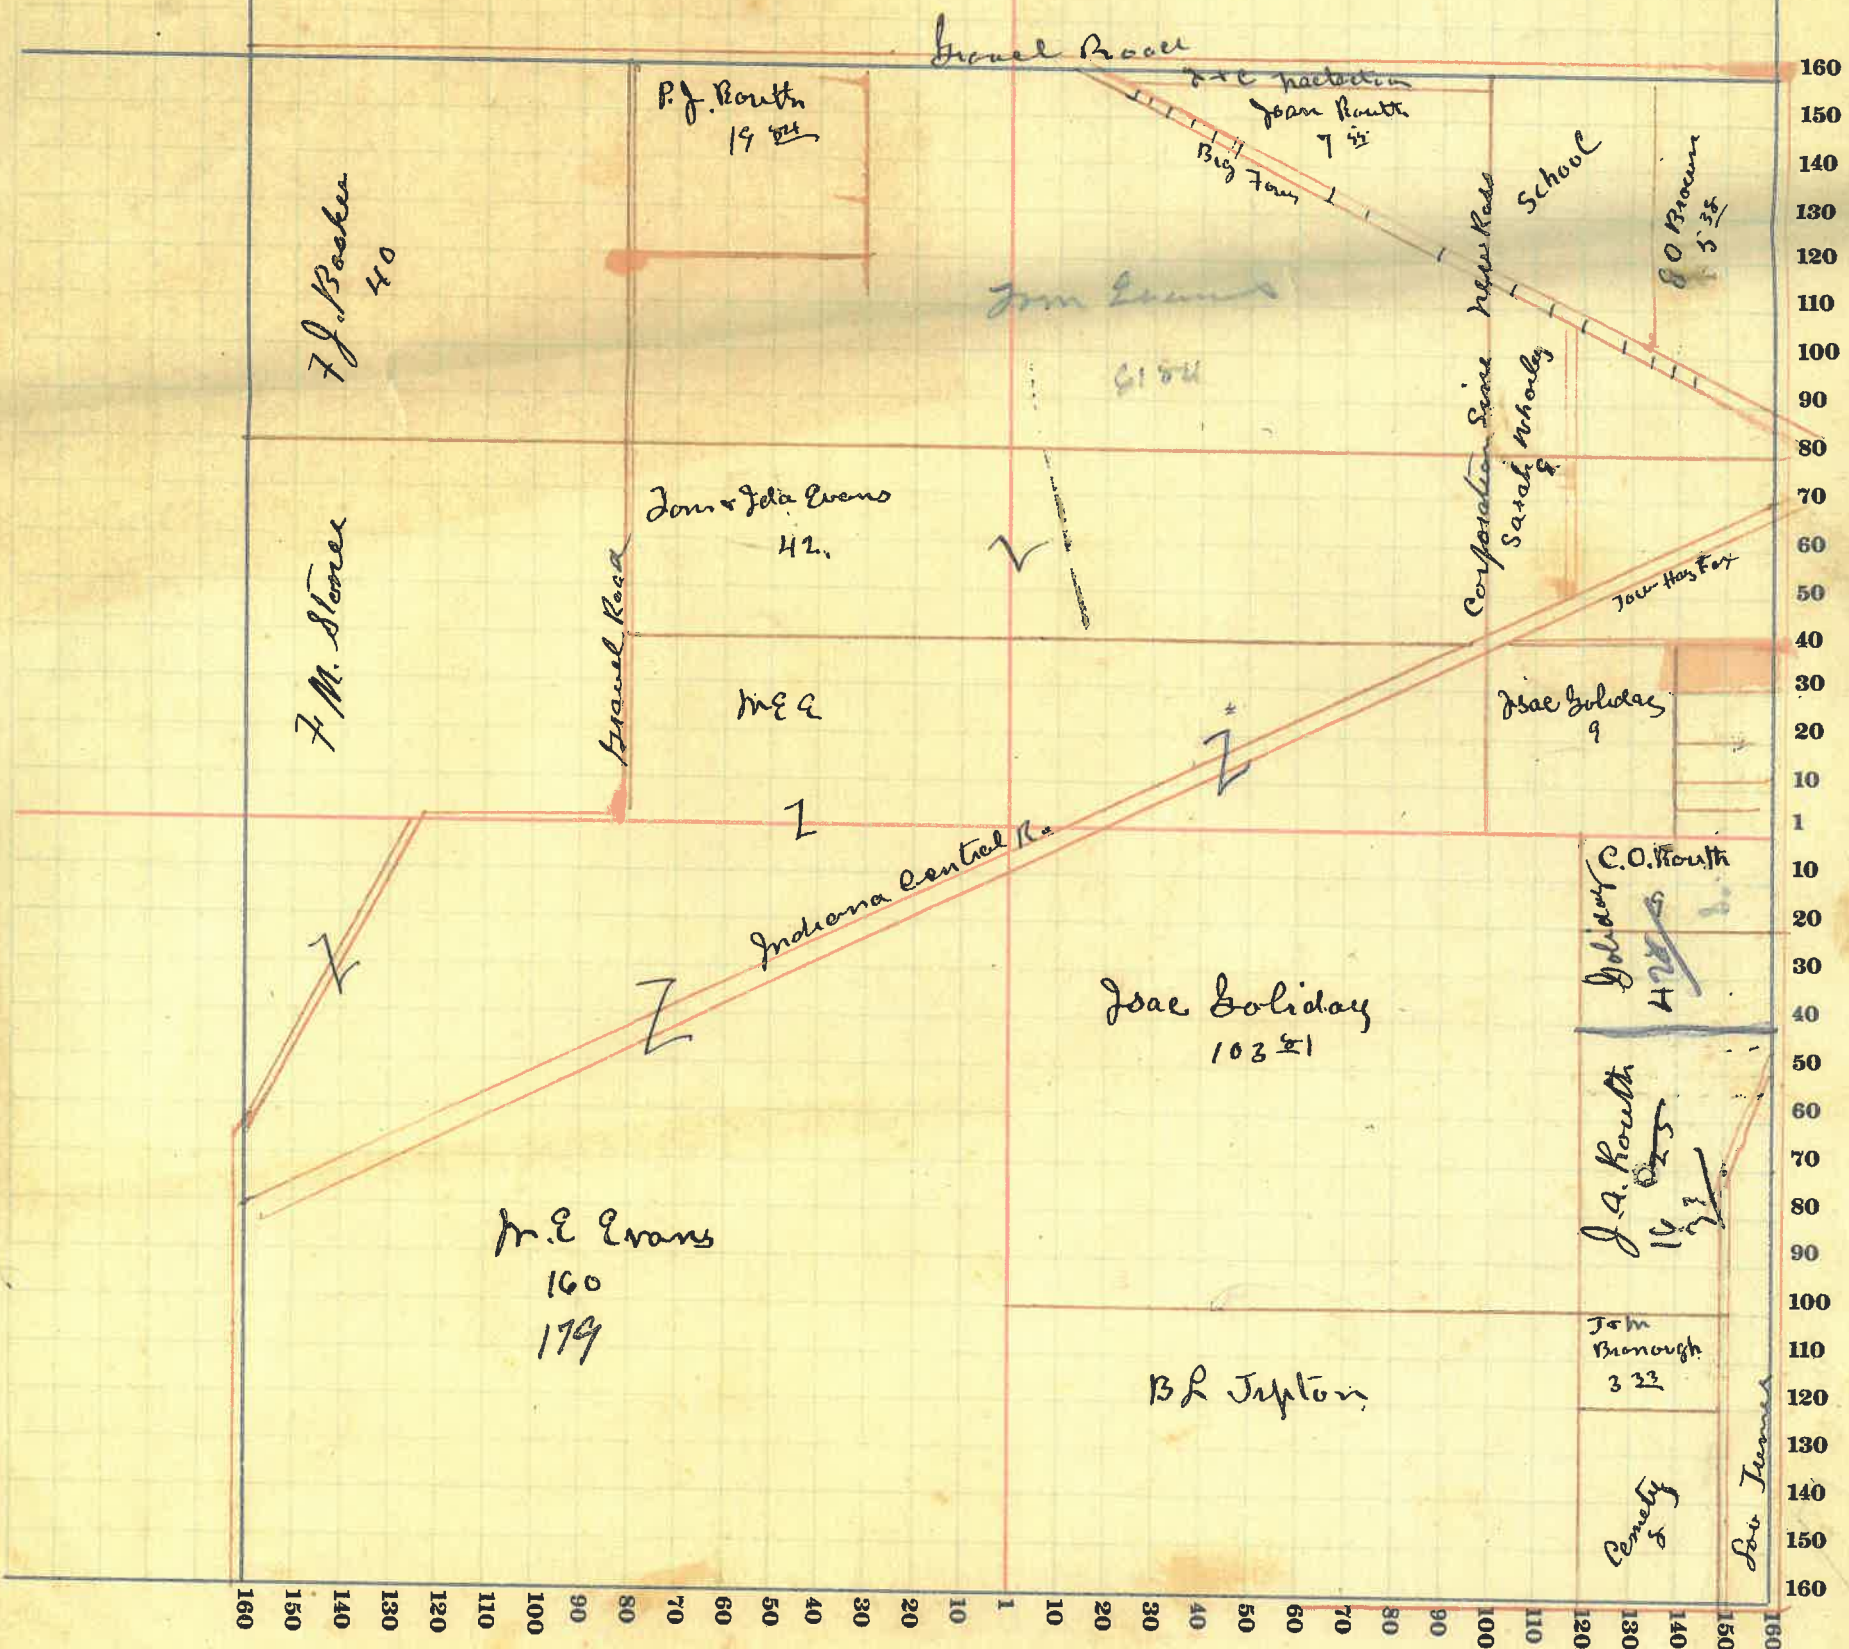 Gravel Road
P. J. Routh
19 84
Joan Routh
7
Big Four
School
Brown
5 38
F J. Booher
40
Tom Evans
61 84
Corporation Line New Ross
Sarah Whorley
8
Tom & Ida Evans
42.
F. M. Stoner
Gravel Road
M E E
Isac Goliday
9
Indiana Central R.
C.O. Routh
Goliday
Isac Goliday
103 81
J. A. Routh
M. E Evans
160
179
J & M
Bronough
3 33
B L Tipton
Cemety
2
Turner
160
150
140
130
120
110
100
90
80
70
60
50
40
30
20
10
1
10
20
30
40
50
60
70
80
90
100
110
120
130
140
150
160
160 150 140 130 120 110 100 90 80 70 60 50 40 30 20 10 1 10 20 30 40 50 60 70 80 90 100 110 120 130 140 150 160